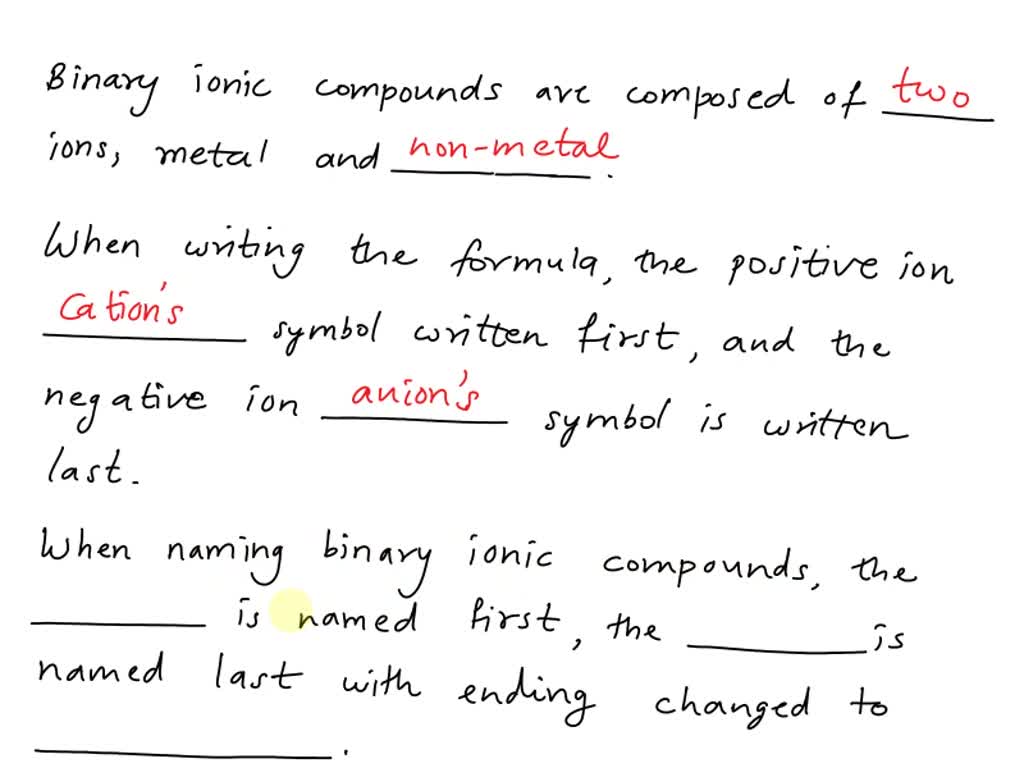 Binary ionic compounds are composed of two
ions, metal and non-metal.
When writing the formula, the positive ion
Cation's symbol written first, and the
negative ion anion's symbol is written
last.
When naming binary ionic compounds, the
__________ is named first, the __________ is
named last with ending changed to
__________.